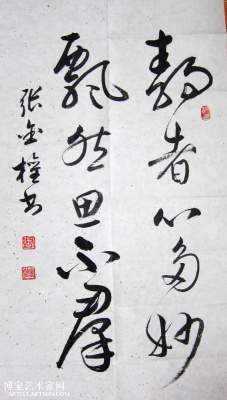 静者心多妙
飘然思不群
张金权书
博宝艺术家网
ARTIST.ARTXUN.COM